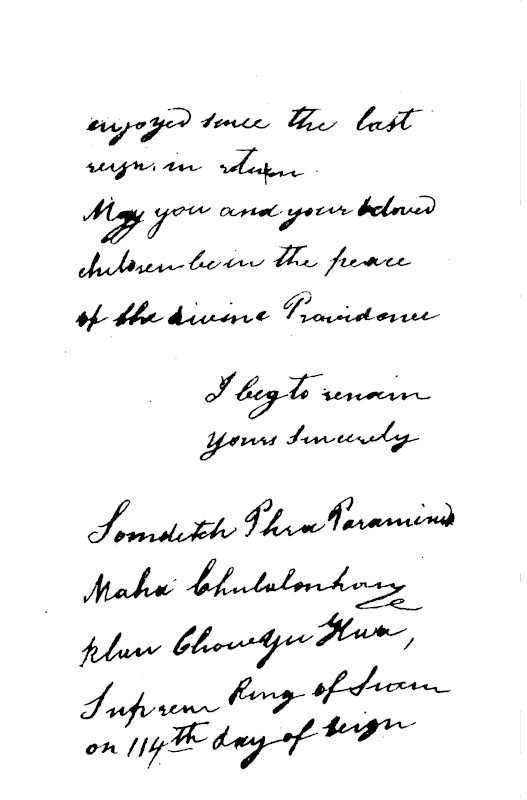 enjoyed since the last
reign in return
May you and your beloved
children be in the peace
of the divine Providence
I beg to remain
Yours Sincerely
Somdetch Phra Paramind
Maha Chulalonkorn
Klau Chow Yu Hua,
Supreme King of Siam
on 114th day of reign